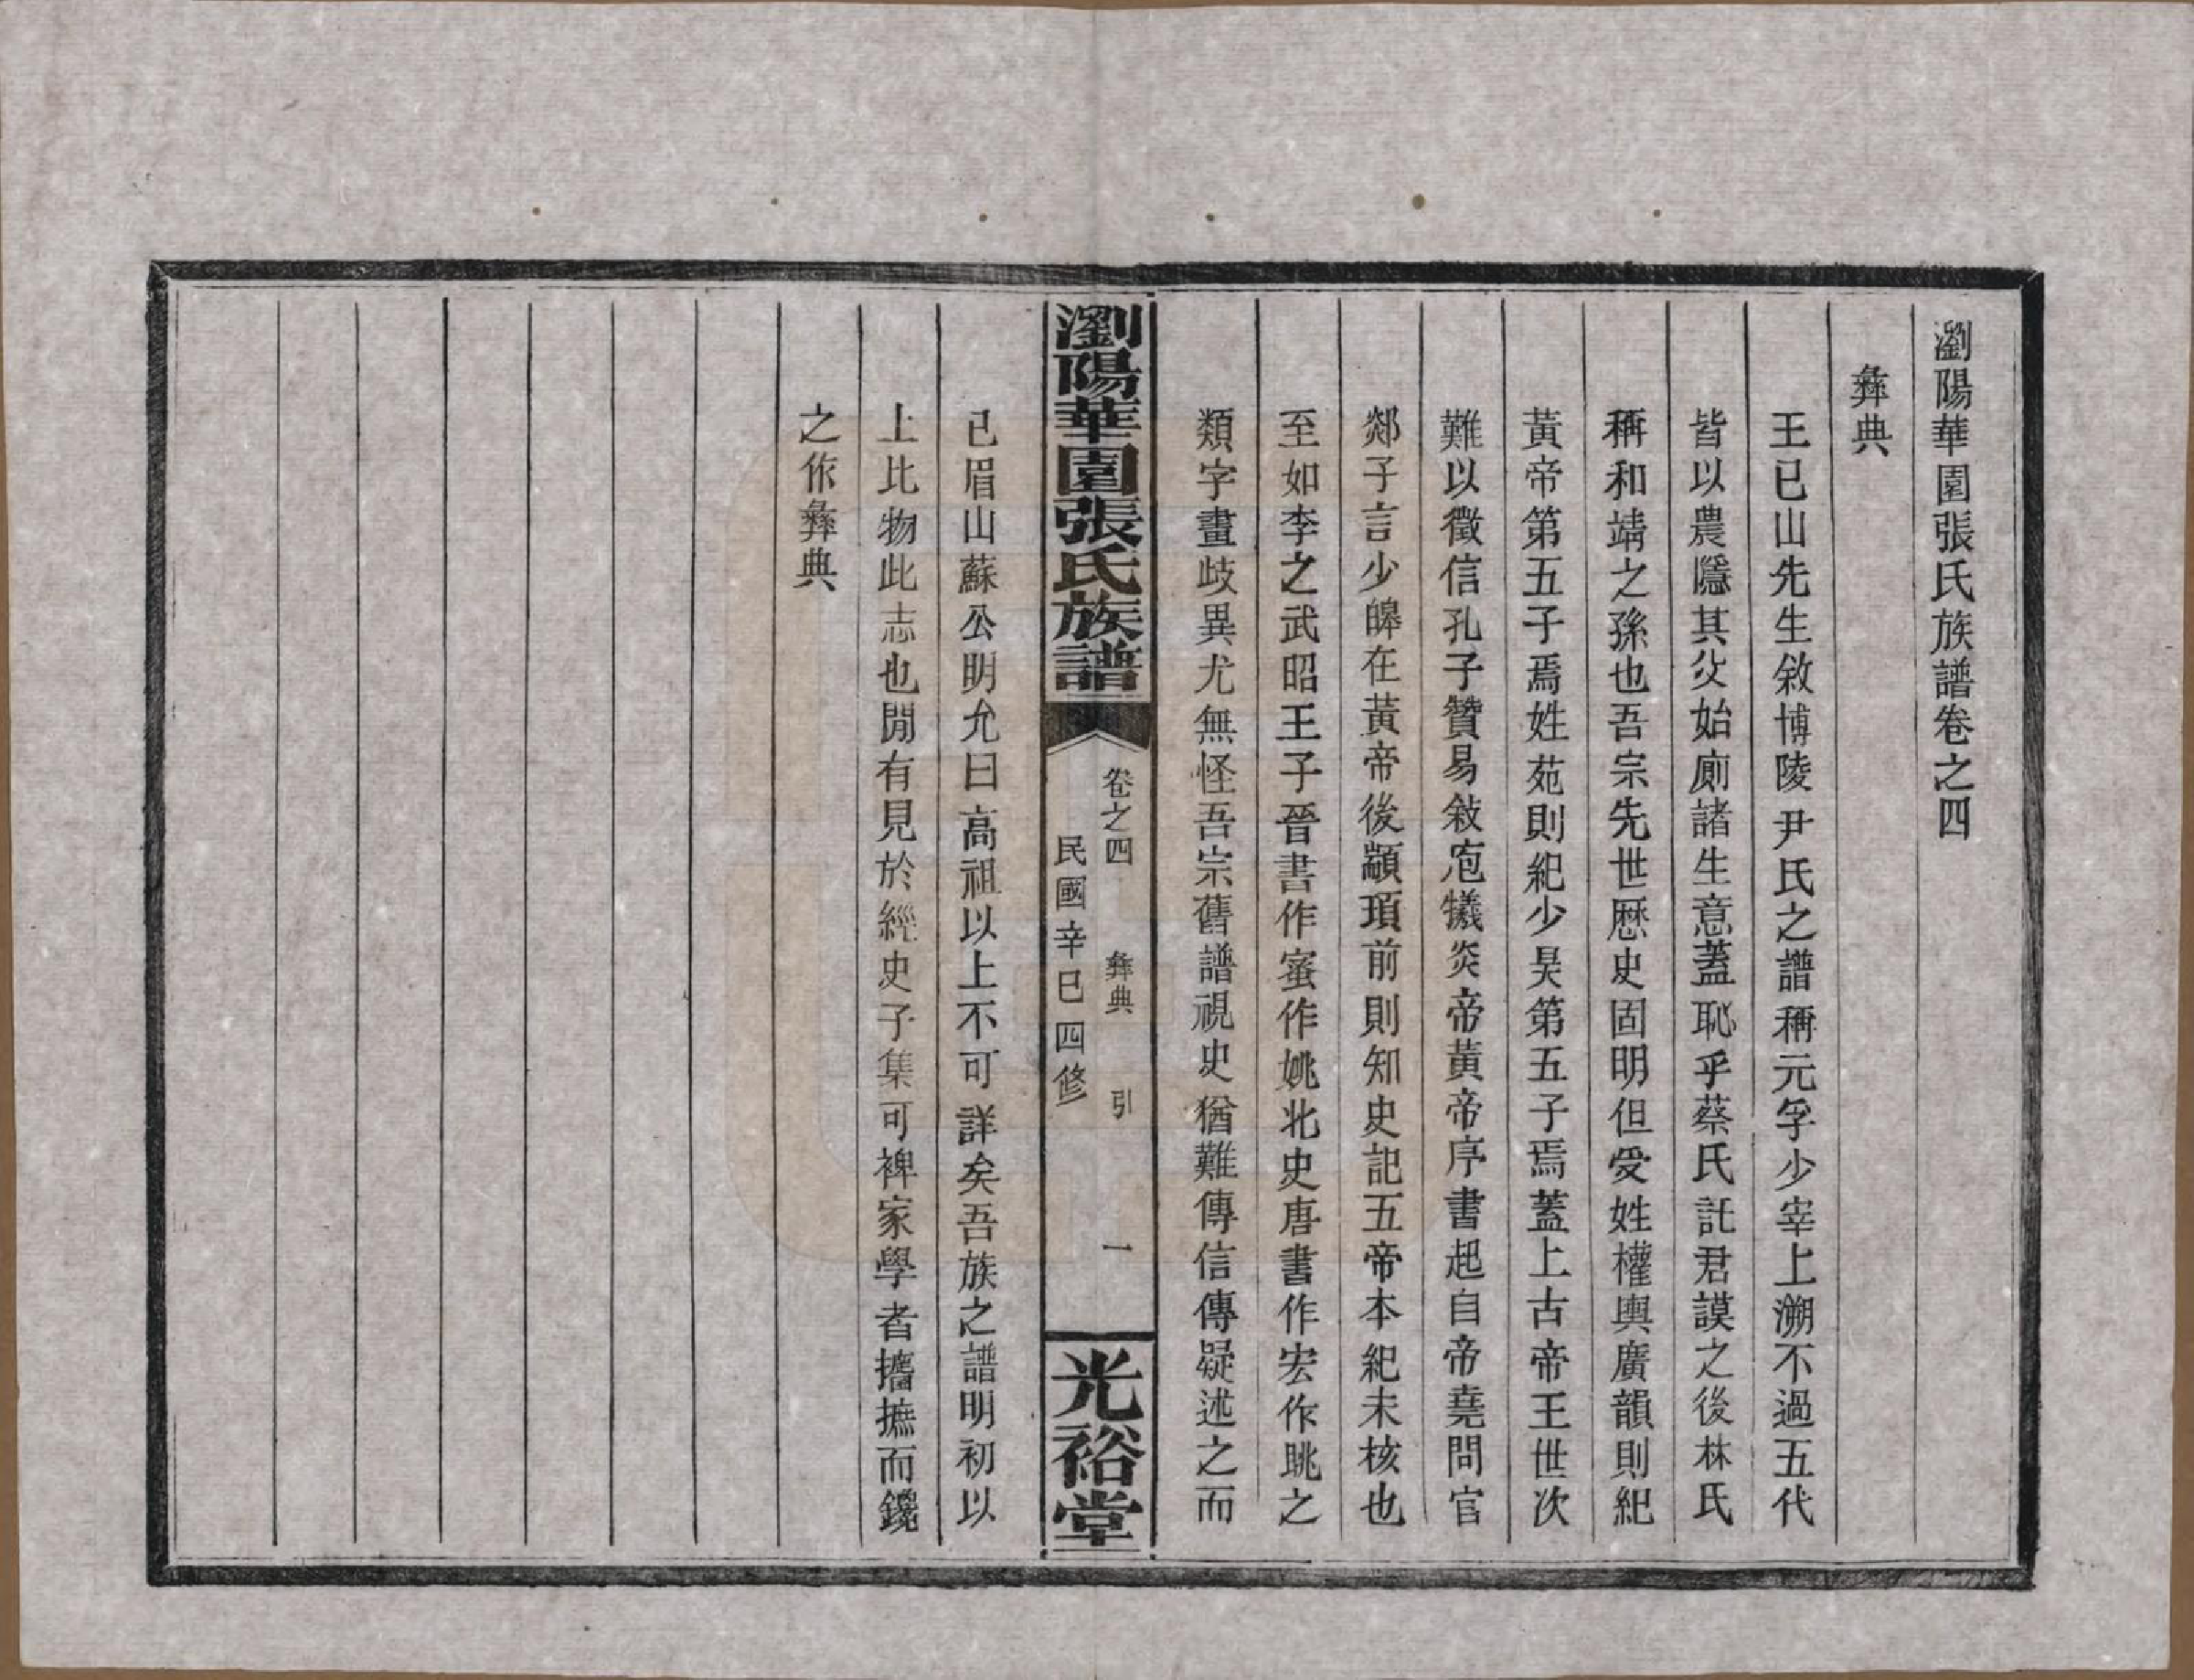 瀏陽華園張氏族譜卷之四
彝典
王巳山先生敘博陵尹氏之譜稱元孚少宰上溯不過五代
皆以農隱其父始廁諸生意蓋恥乎蔡氏託君謨之後林氏
稱和靖之孫也吾宗先世歷史固明但受姓權輿廣韻則紀
黃帝第五子焉姓苑則紀少昊第五子焉蓋上古帝王世次
難以徵信孔子贊易敘庖犧炎帝黃帝序書起自帝堯問官
郯子言少皞在黃帝後顓頊前則知史記五帝本紀未核也
至如李之武昭王子晉書作蜜作姚北史唐書作宏作眺之
類字畫歧異尤無怪吾宗舊譜視史猶難傳信傳疑述之而
瀏陽華園張氏族譜
卷之四 彝典 引 一
民國辛巳四修
光裕堂
已眉山蘇公明允曰高祖以上不可詳矣吾族之譜明初以
上比物此志也閒有見於經史子集可裨家學者攟摭而鑱
之作彝典